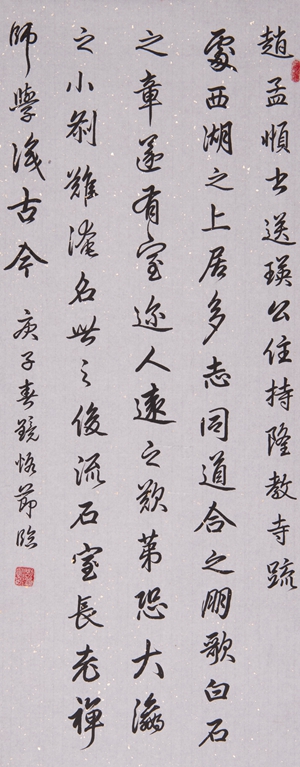 趙孟頫書送瑛公住持隆教寺疏
處西湖之上居多志同道合之朋歌白石
之章遂有室迩人遠之歎第恐大瀛
之小剎難淹名世之俊流石室長老禪
師學識古今 庚子春 節臨